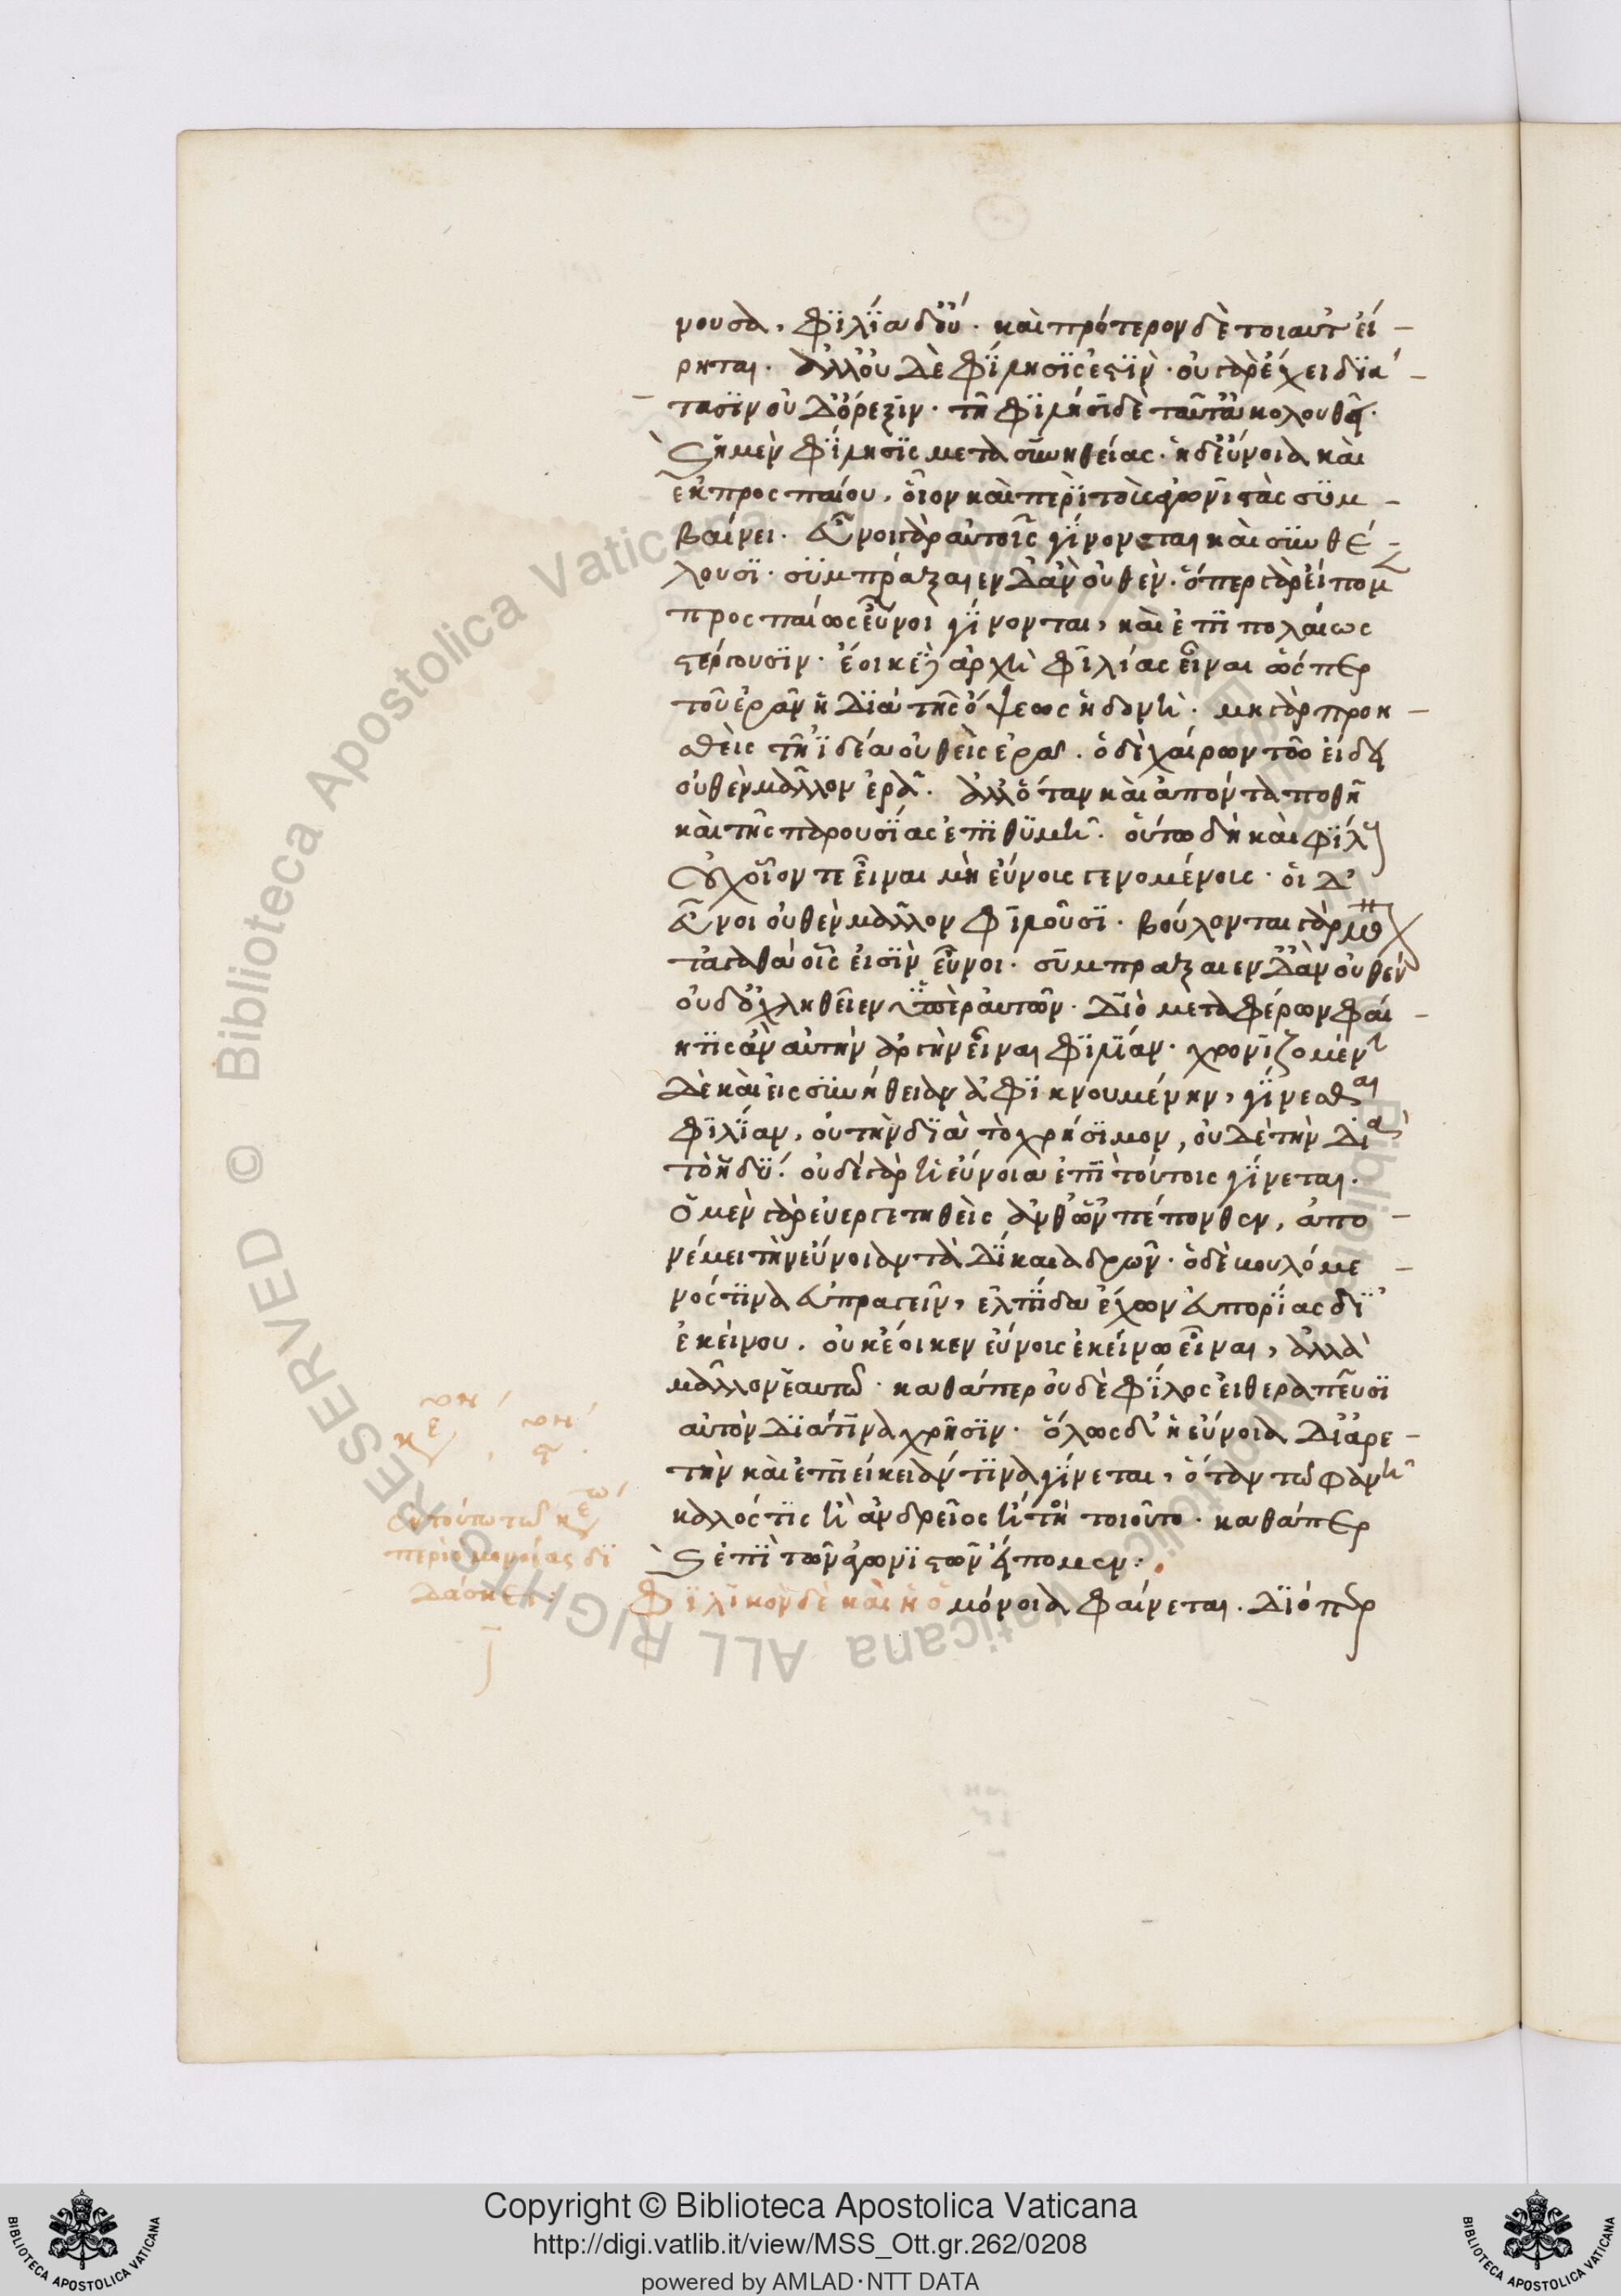 νουσα, φιλία δ' οὔ. καὶ πρότερον δὲ τοιαῦτ' εἴ-
ρηται. ἀλλ' οὐδὲ φίλησίς ἐστιν. οὐ γὰρ ἔχει διά-
τασιν οὐδ' ὄρεξιν. τῇ φιλήσει δὲ ταῦτ' ἀκολουθεῖ.
καὶ ἡ μὲν φίλησις μετὰ συνηθείας. ἡ δ' εὔνοια καὶ
ἐκ προσπαίου. οἷον καὶ περὶ τοὺς ἀγωνιστὰς συμ-
βαίνει. εὖνοι γὰρ αὐτοῖς γίνονται καὶ συνθέ-
λουσι. συμπράξαιεν δ' ἂν οὐθέν. ὅπερ γὰρ εἴπομεν
προσπαίως εὖνοι γίνονται, καὶ ἐπιπολαίως
στέργουσιν. ἔοικε δὴ ἀρχὴ φιλίας εἶναι ὥσπερ
τοῦ ἐρᾶν ἡ διὰ τῆς ὄψεως ἡδονή. μὴ γὰρ προη-
σθεὶς τῇ ἰδέᾳ οὐθεὶς ἐρᾷ. ὁ δὲ χαίρων τῷ εἴδει
οὐθὲν μᾶλλον ἐρᾷ. ἀλλ' ὅταν καὶ ἀπόντα ποθῇ
καὶ τῆς παρουσίας ἐπιθυμῇ. οὕτω δὴ καὶ φίλους
οὐχ οἷόν τε εἶναι μὴ εὔνους γενομένους. οἱ δ'
εὖνοι οὐθὲν μᾶλλον φιλοῦσι. βούλονται γὰρ μόνον
τἀγαθὰ οἷς εἰσὶν εὖνοι. συμπράξαιεν δ' ἂν οὐθέν
οὐδ' ὀχληθεῖεν ὑπὲρ αὐτῶν. διὸ μεταφέρων φαί-
η τις ἂν αὐτὴν ἀργὴν εἶναι φιλίαν. χρονιζομένην
δὲ καὶ εἰς συνήθειαν ἀφικνουμένην, γίνεσθαι
φιλίαν, οὐ τὴν διὰ τὸ χρήσιμον, οὐδὲ τὴν διὰ
τὸ ἡδύ. οὐδὲ γὰρ ἡ εὔνοια ἐπὶ τούτοις γίνεται.
ὁ μὲν γὰρ εὐεργετηθεὶς ἀνθ' ὧν πέπονθεν, ἀπο-
νέμει τὴν εὔνοιαν τὰ δίκαια δρῶν. ὁ δὲ βουλόμε-
νός τινα εὐπραγεῖν, ἐλπίδα ἔχων εὐπορίας δι'
ἐκείνου. οὐκ ἔοικεν εὔνους ἐκείνῳ εἶναι, ἀλλὰ
μᾶλλον ἑαυτῷ. καθάπερ οὐδὲ φίλος εἰ θεραπεύσει
αὐτὸν διά τινα χρῆσιν. ὅλως δ' ἡ εὔνοια δι' ἀρε-
τὴν καὶ ἐπιείκειάν τινα γίνεται, ὅταν τῷ φανῇ
καλός τις ἢ ἀνδρεῖος ἤ τι τοιοῦτο. καθάπερ
καὶ ἐπὶ τῶν ἀγωνιστῶν εἴπομεν:
Φιλικὸν δὲ καὶ ἡ ὁμόνοια φαίνεται. διόπερ
ἐν τούτῳ τῷ κεφ
περὶ ὁμονοίας δι
δάσκει:
Copyright © Biblioteca Apostolica Vaticana
http://digi.vatlib.it/view/MSS_Ott.gr.262/0208
powered by AMLAD·NTT DATA